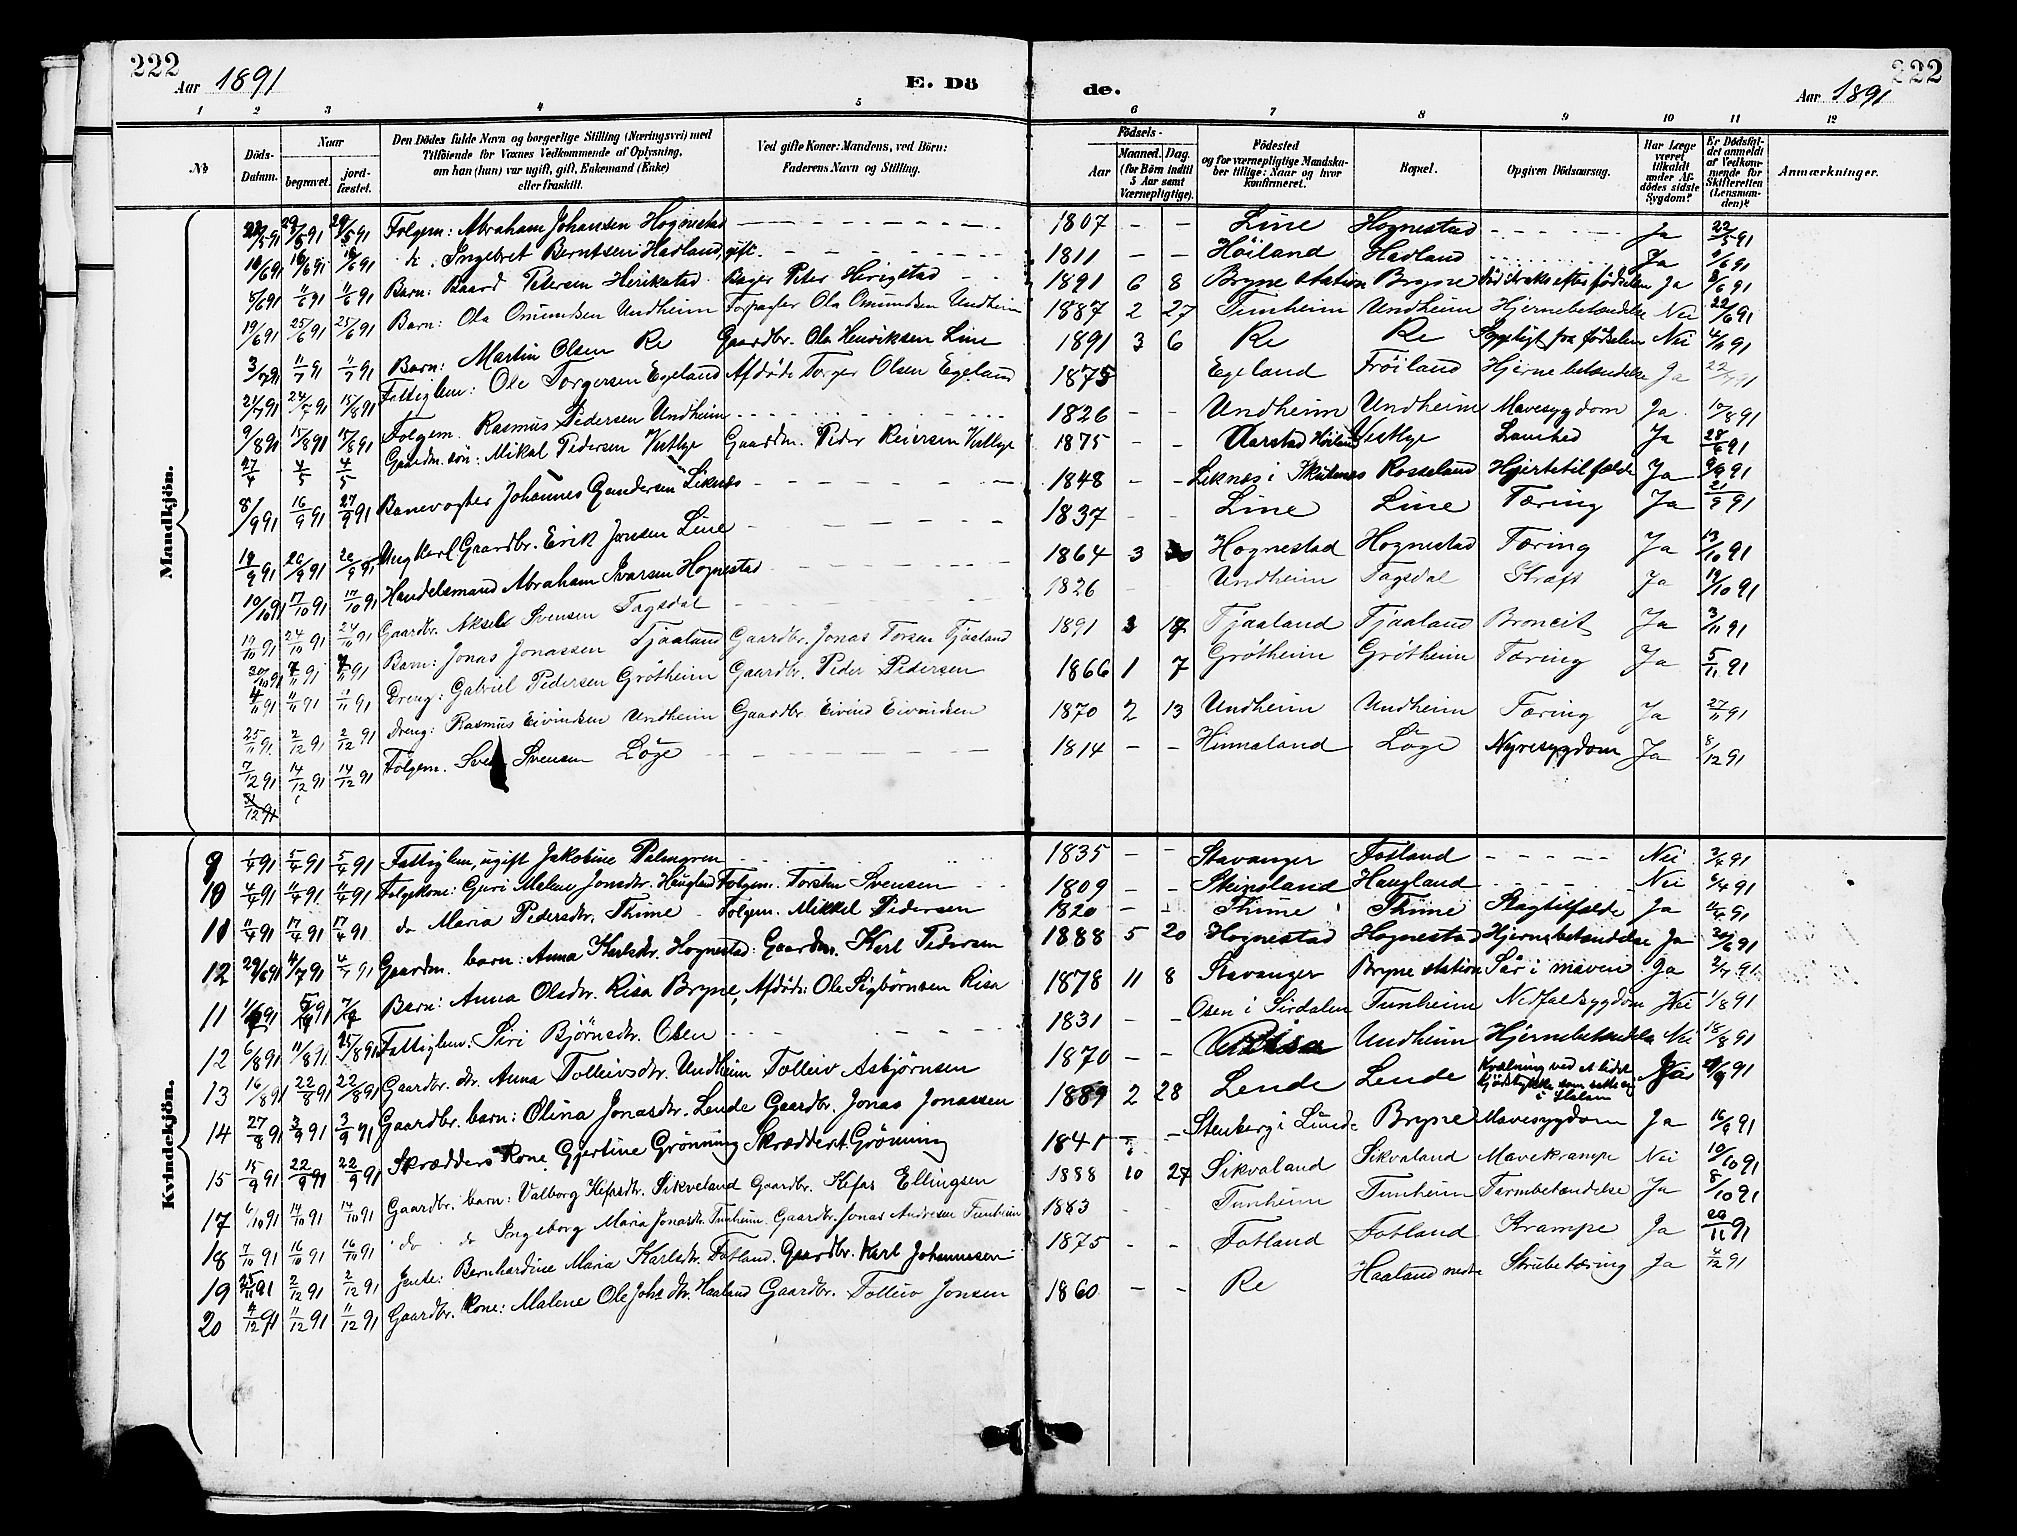 222
Aar 1891
E. Dö
de.
Aar 1891
222
1 2 3 4 5 6 7 8 9 10 11 12
№
Döds-Datum.
Naar
begravet.
jord-fæstet.
Den Dödes fulde Navn og borgerlige Stilling (Næringsvei) med
Tilföiende for Voxnes Vedkommende af Oplysning,
om han (hun) var ugift, gift, Enkemand (Enke)
eller fraskilt.
Ved gifte Koner: Mandens, ved Börn:
Faderens Navn og Stilling.
Födsels-
Aar
Maaned. Dag.
(for Börn indtil
5 Aar samt
Værnepligtige).
Födested
og for værnepligtige Mandska-
ber tillige: Naar og hvor
konfirmeret.
Bopæl.
Opgiven Dödsaarsag.
Har Læge
været
tilkaldt
under Af-
dödes sidste
Sygdom?
Er Dödsfal-
det anmeldt
af Vedkom-
mende for
Skifteretten
(Lensman-
den)?
Anmærkninger.
Mandkjön.
22/5 91 29/5 91 29/5 91 Folgem: Abraham Johansen Hognestad 1807 - - Line Hognestad Ja 22/5 91
16/6 91 16/6 91 Ingebret Berntsen Hadland, gift. 1811 - - Höiland Hadland Ja 91
8/6 91 11/6 91 11/6 91 Barn: Baard Petersen Herikstad Bager Peter Herigstad 1891 6 8 Bryne station Bryne Död straks efter födselen Ja 8/6 91
19/6 91 25/6 91 25/6 91 Barn: Ola Omundsen Undheim Forpagter Ola Omundsen Undheim 1887 2 27 Tunheim Undheim Hjernebetændelse Nei 22/6 91
3/7 91 11/7 91 11/7 91 Barn: Martin Olsen Re Gaardbr. Ole Henriksen Line 1891 3 6 Re Re Sygeligt fra födselen Nei 91
21/7 91 24/7 91 15/8 91 Fattiglem: Ole Torgersen Egeland Afdöde Torger Olsen Egeland 1875 Egeland Fröiland Hjernebetændelse Ja 22/7 91
9/8 91 17/8 91 17/8 91 Folgem. Rasmus Pedersen Undheim 1826 - - Undheim Undheim Mavesygdom Ja 17/8 91
27/4 4/5 4/5 Gaardm. sön: Mikal Pedersen Vestlye Gaardm. Peder Reiersen Vestlye 1875 - - Aarstad Höiland Vestlye Lamhed Ja 28/4 91
8/9 91 16/9 91 27/9 91 Banevogter Johannes Gundersen Liknes 1848 - - Liknes i Skudenes Rosseland Hjertetilfælde Ja 9/9 91
19/9 91 26/9 91 26/9 91 Ungkarl Gaardbr. Erik Jonsen Line 1837 Line Line Tæring Ja 21/9 91
10/10 91 17/10 91 17/10 91 Handelsmand Abraham Ivarsen Hognestad 1864 3 Hognestad Hognestad Tæring Ja 13/10 91
19/10 91 24/10 91 24/10 91 Gaardbr. Aksel Svensen Tagsdal 1826 - Undheim Tagsdal Kræft Ja 19/10 91
30/10 91 7/11 91 7/11 91 Barn: Jonas Jonassen Tjaaland Gaardbr. Jonas Torsen Tjaaland 1891 3 17 Tjaaland Tjaaland Broncit Ja 3/11 91
4/11 91 11/11 91 11/11 91 Dreng: Gabriel Pedersen Grötheim Gaardbr. Peder Pedersen 1866 1 7 Grötheim Grötheim Tæring Ja 5/11 91
25/11 91 2/12 91 2/12 91 Dreng: Rasmus Eivindsen Undheim Gaardbr. Eivind Eivindsen 1870 2 13 Undheim Undheim Tæring Ja 27/11 91
7/12 91 14/12 91 14/12 91 Folgem. Sven Svensen Löge 1814 - - Hinnaland Löge Nyresygdom Ja 8/12 91
31/12 91
Kvindekjön.
9 1/4 91 5/4 91 5/4 91 Fattiglem, ugift Jakobine Palmgren 1835 - - Stavanger Fotland - - - - - Nei 3/4 91
10 4/4 91 11/4 91 11/4 91 Folgekone: Guri Malene Jonsdtr. Haugland Folgem. Torsten Svensen 1809 - - Steinsland Haugland Nei 6/4 91
11 11/4 91 17/4 91 17/4 91 do Maria Pedersdtr. Thime Folgem. Mikkel Pedersen 1820 - - Thime Thime Slagtilfælde Ja 11/4 91
12 29/6 91 4/7 91 4/7 91 Gaardm. barn: Anna Karlsdtr. Hognestad: Gaardm. Karl Pedersen 1888 5 20 Hognestad Hognestad Hjernebetændelse Ja 91
11 91 91 Barn: Anna Olsdtr. Risa Bryne, Afdöde: Ole Sigbörnsen Risa 1878 11 8 Stavanger Bryne station Sår i maven Ja 2/7 91
12 6/8 91 11/8 91 25/8 91 Fattiglem: Siri Bjørnsdtr. Osen 1831 - - Osen i Sirdalen Tunheim Nedfaldsygdom Nei 1/8 91
13 16/8 91 22/8 91 22/8 91 Gaardbr. dtr. Anna Tolleivsdtr. Undheim Tolleiv Asbjörnsen 1870 - - Undheim Hjernebetændelse Nei 18/8 91
14 27/8 91 3/9 91 3/9 91 Gaardbr. barn: Olina Jonasdtr. Lende Gaardbr. Jonas Jonassen 1889 2 28 Lende Lende Kvælning ved et lidet kjødstykke som satte sig i Halsen Ja 91
15 15/9 91 22/9 91 22/9 91 Skrædders Kone Gjertine Grönning Skrædder T. Grönning 1841 - - Stenberg i Lunde Bryne Mavesygdom Ja 16/9 91
17 6/10 91 14/10 91 14/10 91 Gaardbr. barn: Valborg Kefasdtr. Sikveland Gaardbr. Kefas Ellingsen 1888 10 27 Sikvaland Sikvaland Mavekrampe Nei 10/10 91
18 7/10 91 16/10 91 16/10 91 do do Ingeborg Maria Jonasdtr. Tunheim. Gaardbr. Jonas Andresen Tunheim 1883 Tunheim Tunheim Tarmbetændelse Ja 8/10 91
19 25/11 91 2/12 91 2/12 91 Jente: Bernhardine Maria Karlsdtr. Fotland. Gaardbr. Karl Johannessen 1875 - - Fotland Fotland Krampe Ja 91
20 4/12 91 11/12 91 11/12 91 Gaardbr. Kone: Malene Ole Johs dtr. Haaland Gaardbr. Tolleiv Jonsen 1860 - - Re Haaland nedre Strubetæring Ja 4/12 91